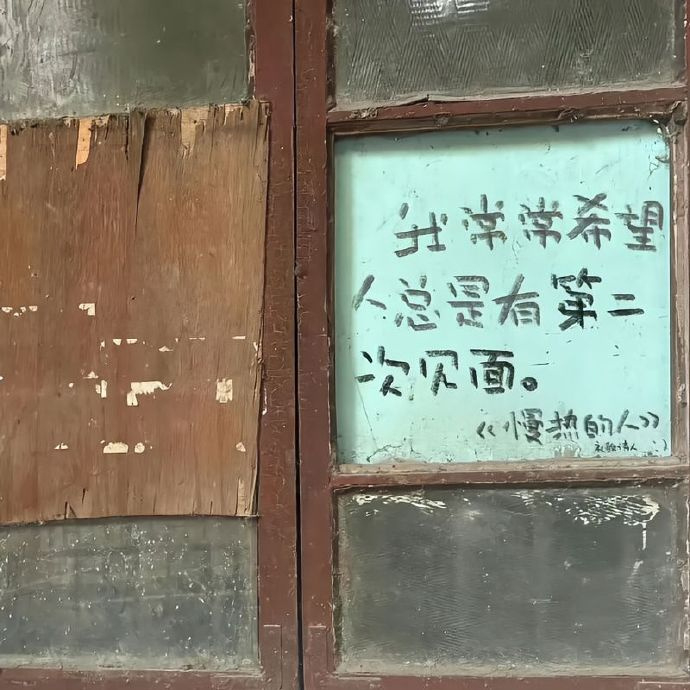 我常常希望
人总是有第二
次见面。
《慢热的人》